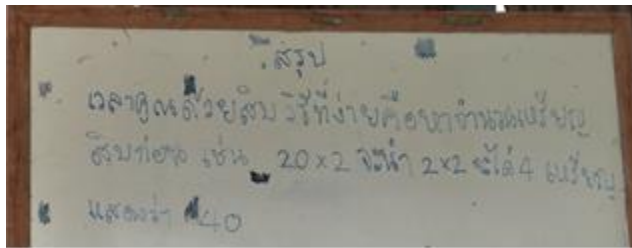 สรุป
เวลาคูณด้วยสิบ วิธีที่ง่ายคือหาจำนวนเหรียญ
สิบก่อน เช่น 20×2 จะนำ 2×2 จะได้ 4 เหรียญ
แสดงว่า 40